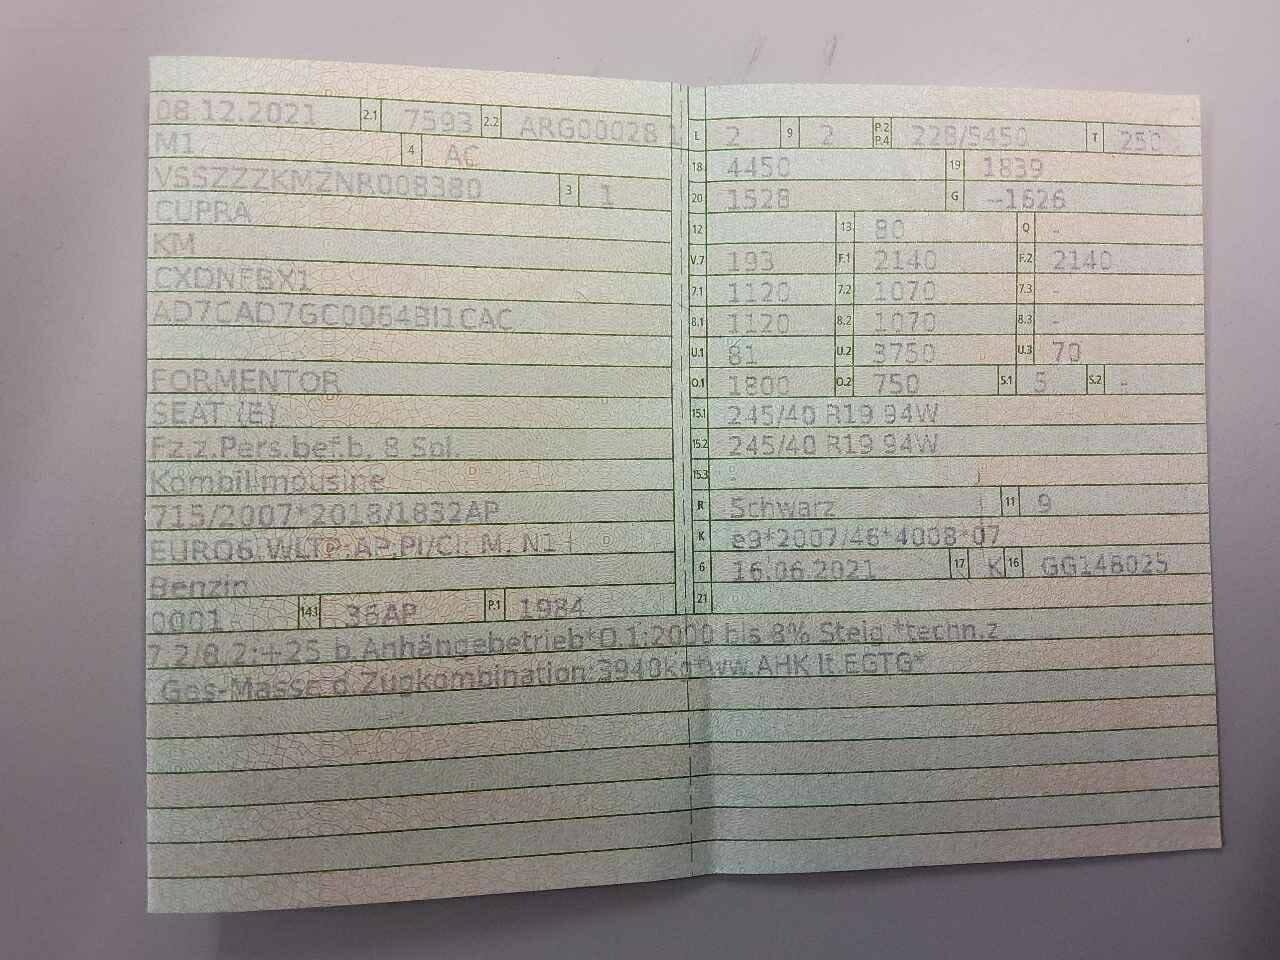 08.12.2021 2.1 7593 2.2 ARG00028 1
M1 4 AC
VSSZZZKMZNR008380 3 1
CUPRA
KM
CXDNFBX1
AD7CAD7GC0064BI1CAC
FORMENTOR
SEAT (E)
Fz.z.Pers.bef.b. 8 Spl.
Kombilimousine
715/2007*2018/1832AP
EURO6 WLTP;AP,PI/CI; M, N1 I
Benzin
0001 14.1 36AP P.1 1984
L 2 9 2 P.2 P.4 228/5450 T 250
18 4450 19 1839
20 1528 G -1626
12 13 80 Q -
V.7 193 F.1 2140 F.2 2140
7.1 1120 7.2 1070 7.3 -
8.1 1120 8.2 1070 8.3 -
U.1 81 U.2 3750 U.3 70
O.1 1800 O.2 750 S.1 5 S.2 -
15.1 245/40 R19 94W
15.2 245/40 R19 94W
15.3 -
R Schwarz 11 9
K e9*2007/46*4008*07
6 16.06.2021 17 K 16 GG148025
21
7.2/8.2:+25 b.Anhängebetrieb*O.1:2000 bis 8% Steig.*techn.z
Ges-Masse d.Zugkombination:3940kg*ww.AHK lt.EGTG*